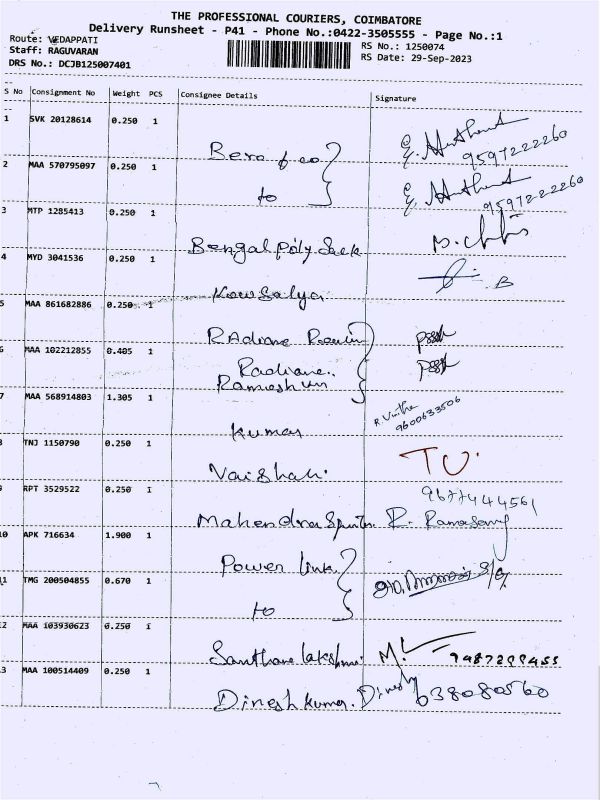 THE PROFESSIONAL COURIERS, COIMBATORE
Delivery Runsheet - P41 - Phone No.:0422-3505555 - Page No.:1
Route: VEDAPPATI
RS No.: 1250074
Staff: RAGUVARAN
RS Date: 29-Sep-2023
DRS No.: DCJB125007401
S No Consignment No Weight PCS Consignee Details Signature
1 SVK 20128614 0.250 1
9597222260
2 MAA 570795097 0.250 1
to
9597222260
3 MTP 1285413 0.250 1
Bengal Poly Sack
4 MYD 3041536 0.250 1
Kowsalya B
5 MAA 861682886 0.250 1
RAdiane
6 MAA 102212855 0.405 1
Radiane
Ramesh
7 MAA 568914803 1.305 1
Kumar
9600633506
8 TNJ 1150790 0.250 1
Vaishali
9 RPT 3529522 0.250 1
9677444561
Mahendra R. Ramasamy
10 APK 716634 1.900 1
Power link
11 TMG 200504855 0.670 1
to
12 MAA 103930623 0.250 1
Santhana lakshmi
13 MAA 100514409 0.250 1
Dinesh kumar. Dinesh 638080560